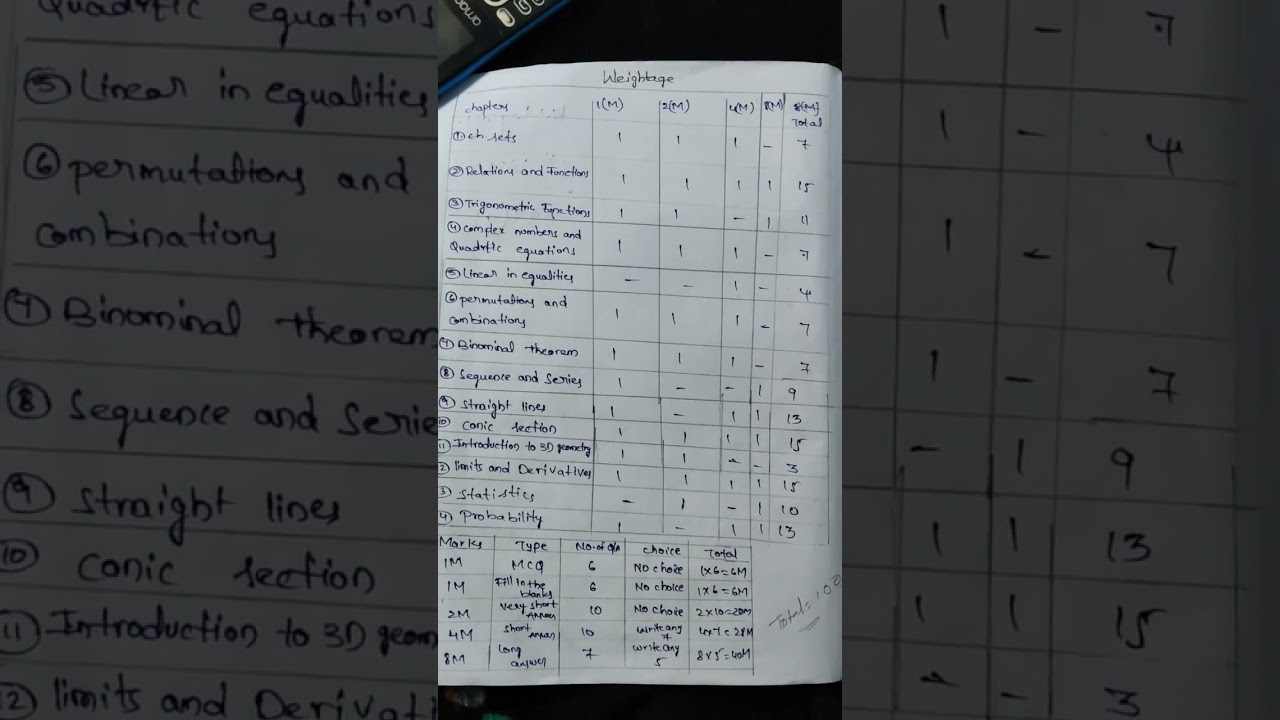 Weightage
chapters 1(M) 2(M) 4(M) 8(M) 8(M) Total
① ch. sets 1 1 1 - 7
② Relations and Functions 1 1 1 1 15
③ Trigonometric Functions 1 1 - 1 11
④ complex numbers and
Quadrtic equations 1 1 1 - 7
⑤ Linear in equalities - - 1 - 4
⑥ permutations and
combinations 1 1 1 - 7
⑦ Binominal theorem 1 1 1 - 7
⑧ Sequence and Series 1 - - 1 9
⑨ straight lines 1 - 1 1 13
⑩ conic section 1 1 1 1 15
⑪ Introduction to 3D geometry 1 1 - - 3
2) limits and Derivatives 1 1 1 1 15
3) statistics - 1 - 1 10
4) Probability 1 - 1 1 13
Marks Type No. of Q/A choice Total
1M MCQ 6 No choice 1x6=6M
1M Fill in the blanks 6 No choice 1x6=6M
2M very short Answer 10 No choice 2x10=20M
4M short Answer 10 write any 7 4x7=28M
8M long answer 7 write any 5 8x5=40M
Total=100
Quadrtic equations 1 - 7
⑤ Linear in equalities 1 - 4
⑥ permutations and
combinations 1 - 7
⑦ Binominal theorem 1 - 7
⑧ Sequence and Serie - 1 9
⑨ straight lines 1 1 13
⑩ conic section 1 1 15
⑪ Introduction to 3D geom - - 3
12) limits and Derivati